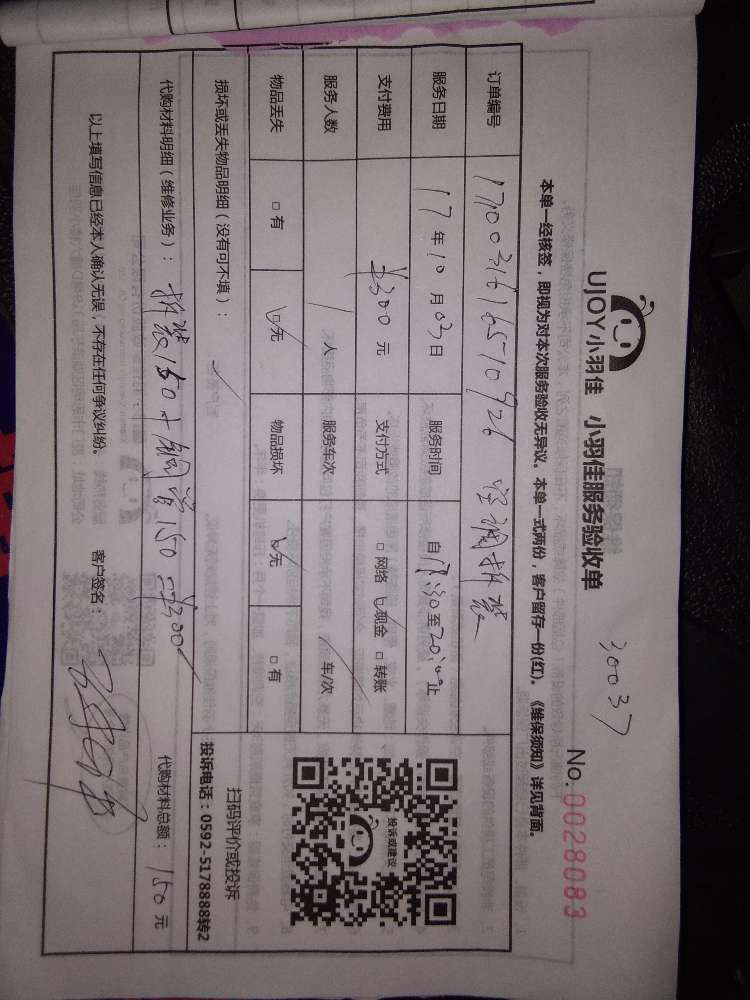 30037
UJOY小羽佳 小羽佳服务验收单
No. 0028083
本单一经核签,即视为对本次服务验收无异议。本单一式两份,客户留存一份(红)。《维保须知》详见背面。
订单编号 1700316165710926 空调拆装
服务日期 17年10月03日 服务时间 自 至20:00止
支付费用 ¥300元 支付方式 □网络 ☑现金 □转账
服务人数 1人 服务车次 / 车/次
物品丢失 □有 ☑无 物品损坏 ☑无 □有
损坏或丢失物品明细(没有可不填):
代购材料明细(维修业务): 拆装150+铜管150=¥300
代购材料总额: 150元
投诉或建议
扫码评价或投诉
投诉电话:0592-5178888转2
以上填写信息已经本人确认无误,不存在任何争议纠纷。 客户签名: